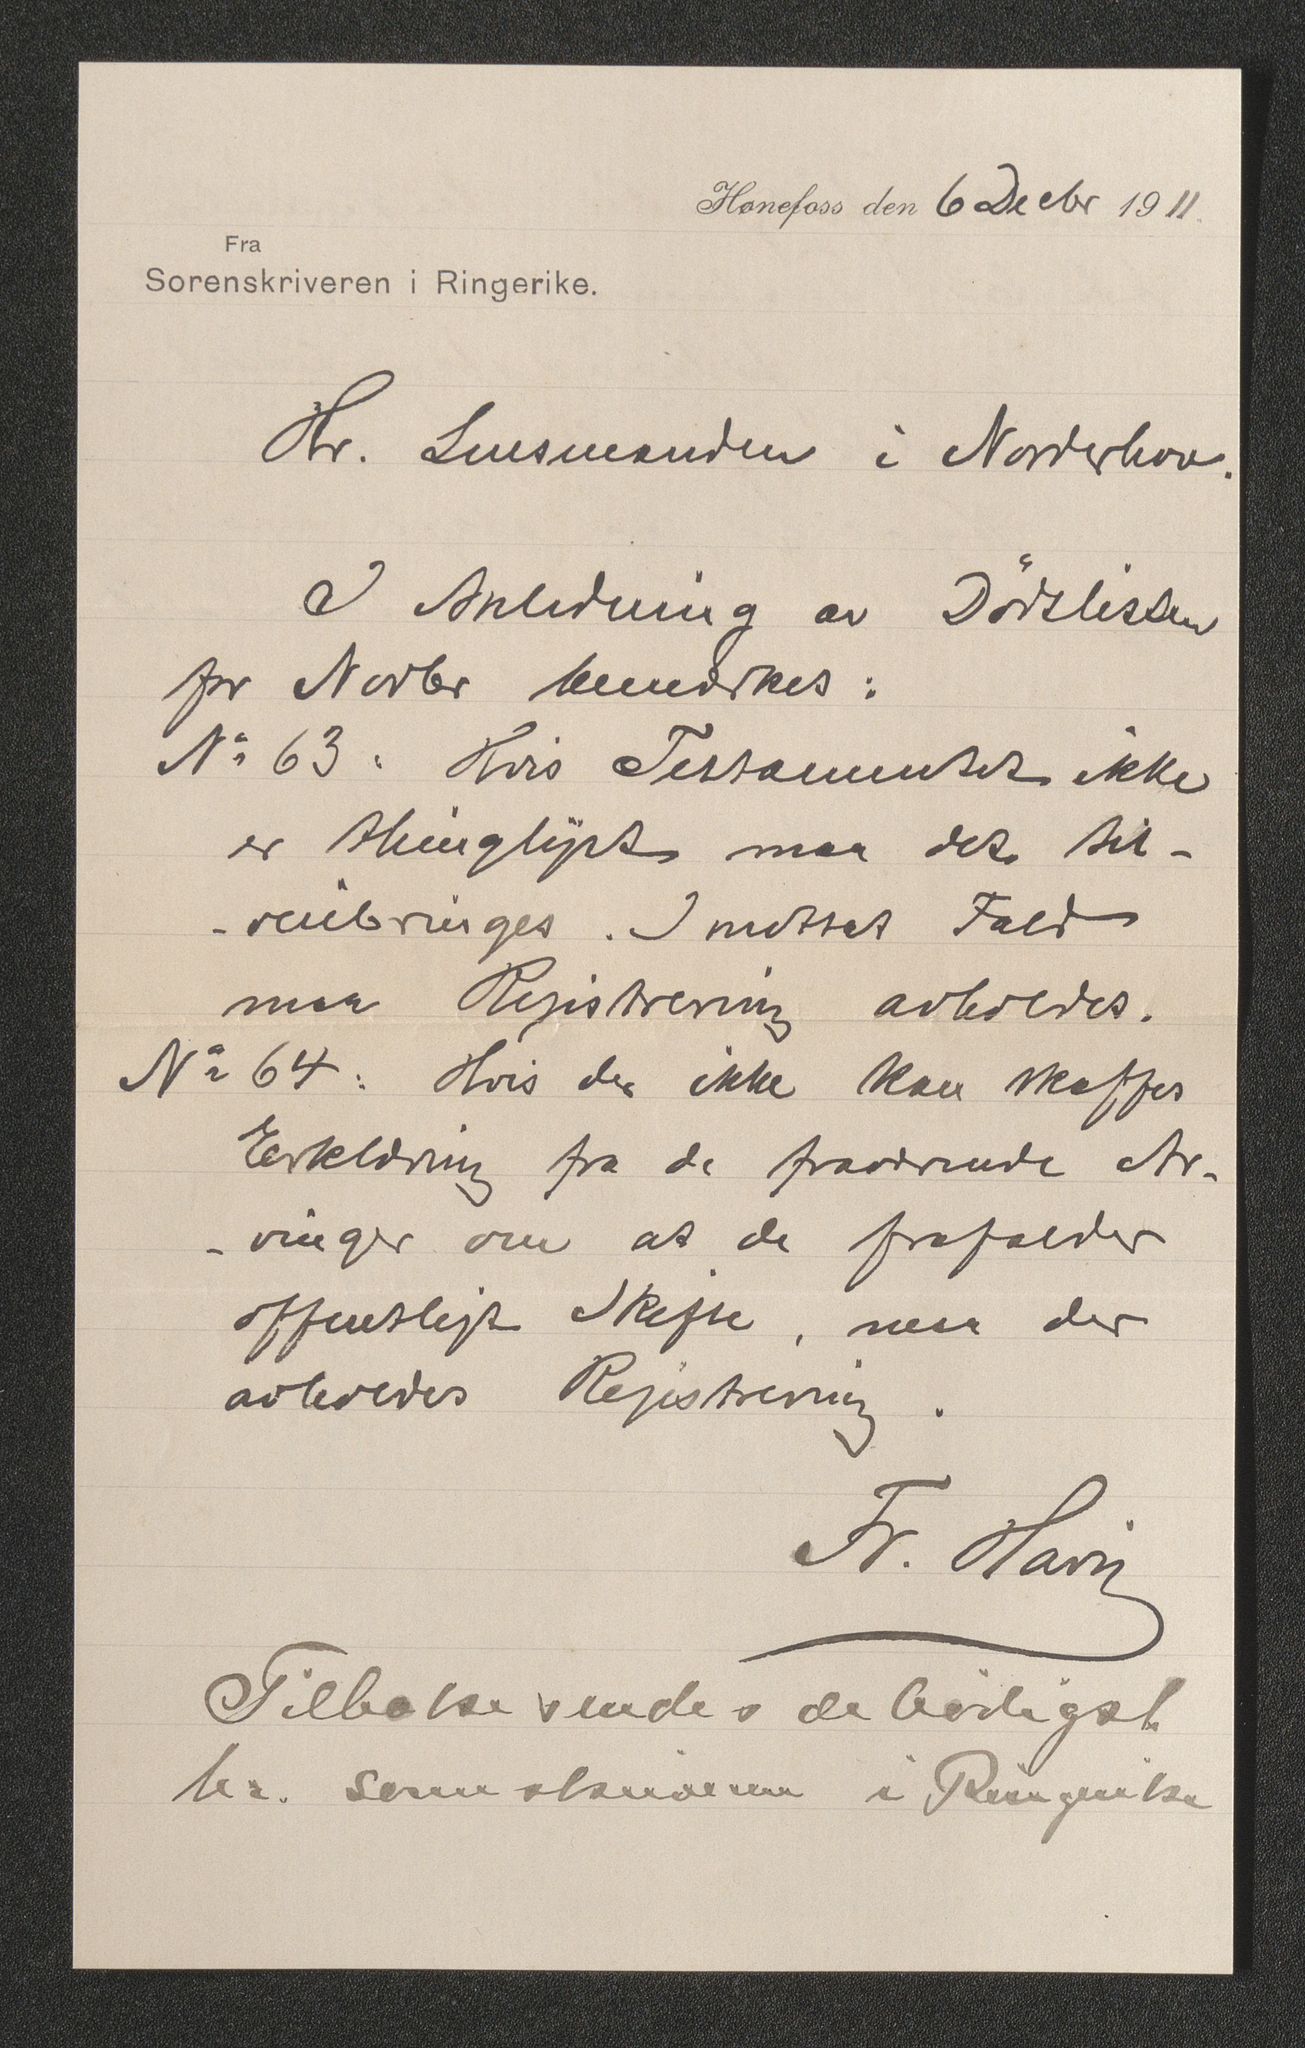 Hønefoss den 6 Decbr 1911.
Fra
Sorenskriveren i Ringerike.
Hr. Lensmanden i Norderhov.
I Anledning av Dödslisten
for Novbr bemærkes:
No 63: Hvis Testamentet ikke
er thinglyst maa det til-
-veiebringes. I motsat Fald
maa Registrering avholdes.
No 64: Hvis der ikke kan skaffes
Erklæring fra de fraværende Ar-
-vinger om at de frafalder
offentligt Skifte, maa der
avholdes Registrering.
Fr. Havig
Tilbakesendes ærbødigst
hr. sorenskriveren i Ringerike